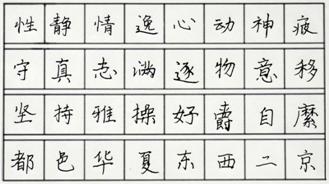 性静情逸心动神疲
守真志满逐物意移
坚持雅操好爵自縻
都色华夏东西二京